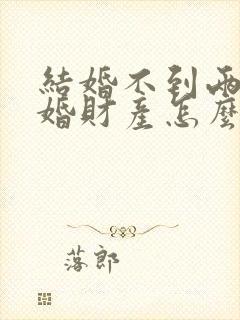 結婚不到兩
婚財產怎麼
落郎